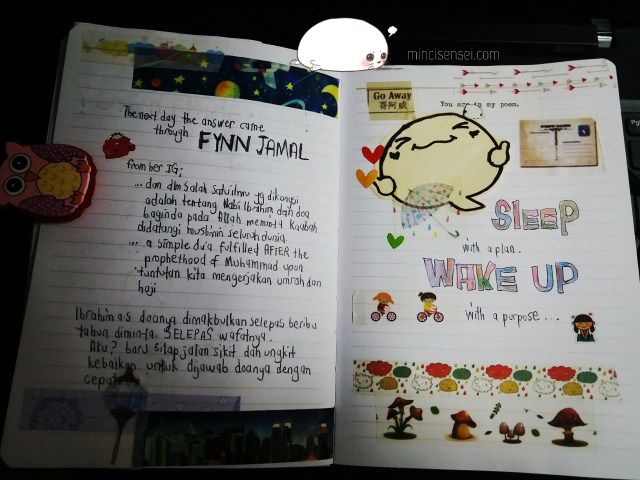 mincisensei.com
The next day the answer came
through FYNN JAMAL
from her IG;
... dan dlm salah satu ilmu yg dikongsi
adalah tentang Nabi Ibrahim dan doa
baginda pada Allah meminta Kaabah
didatangi muslimin seluruh dunia.
... a simple du'a fulfilled AFTER the
prophethood of Muhammad upon
tuntutan kita mengerjakan umrah dan
haji
Ibrahim a.s. doanya dimakbulkan selepas beribu
tahun diminta. SELEPAS wafatnya.
Aku? Baru silap jalan sikit dah ungkit
kebaikan untuk dijawab doanya dengan
cepat
Go Away
哥阿威
You are in my poem.
SLEEP
with a plan.
WAKE UP
with a purpose ...